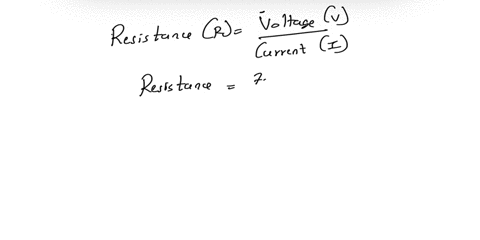 Resistance (R) = Voltage (V) / Current (I)
Resistance = 7.